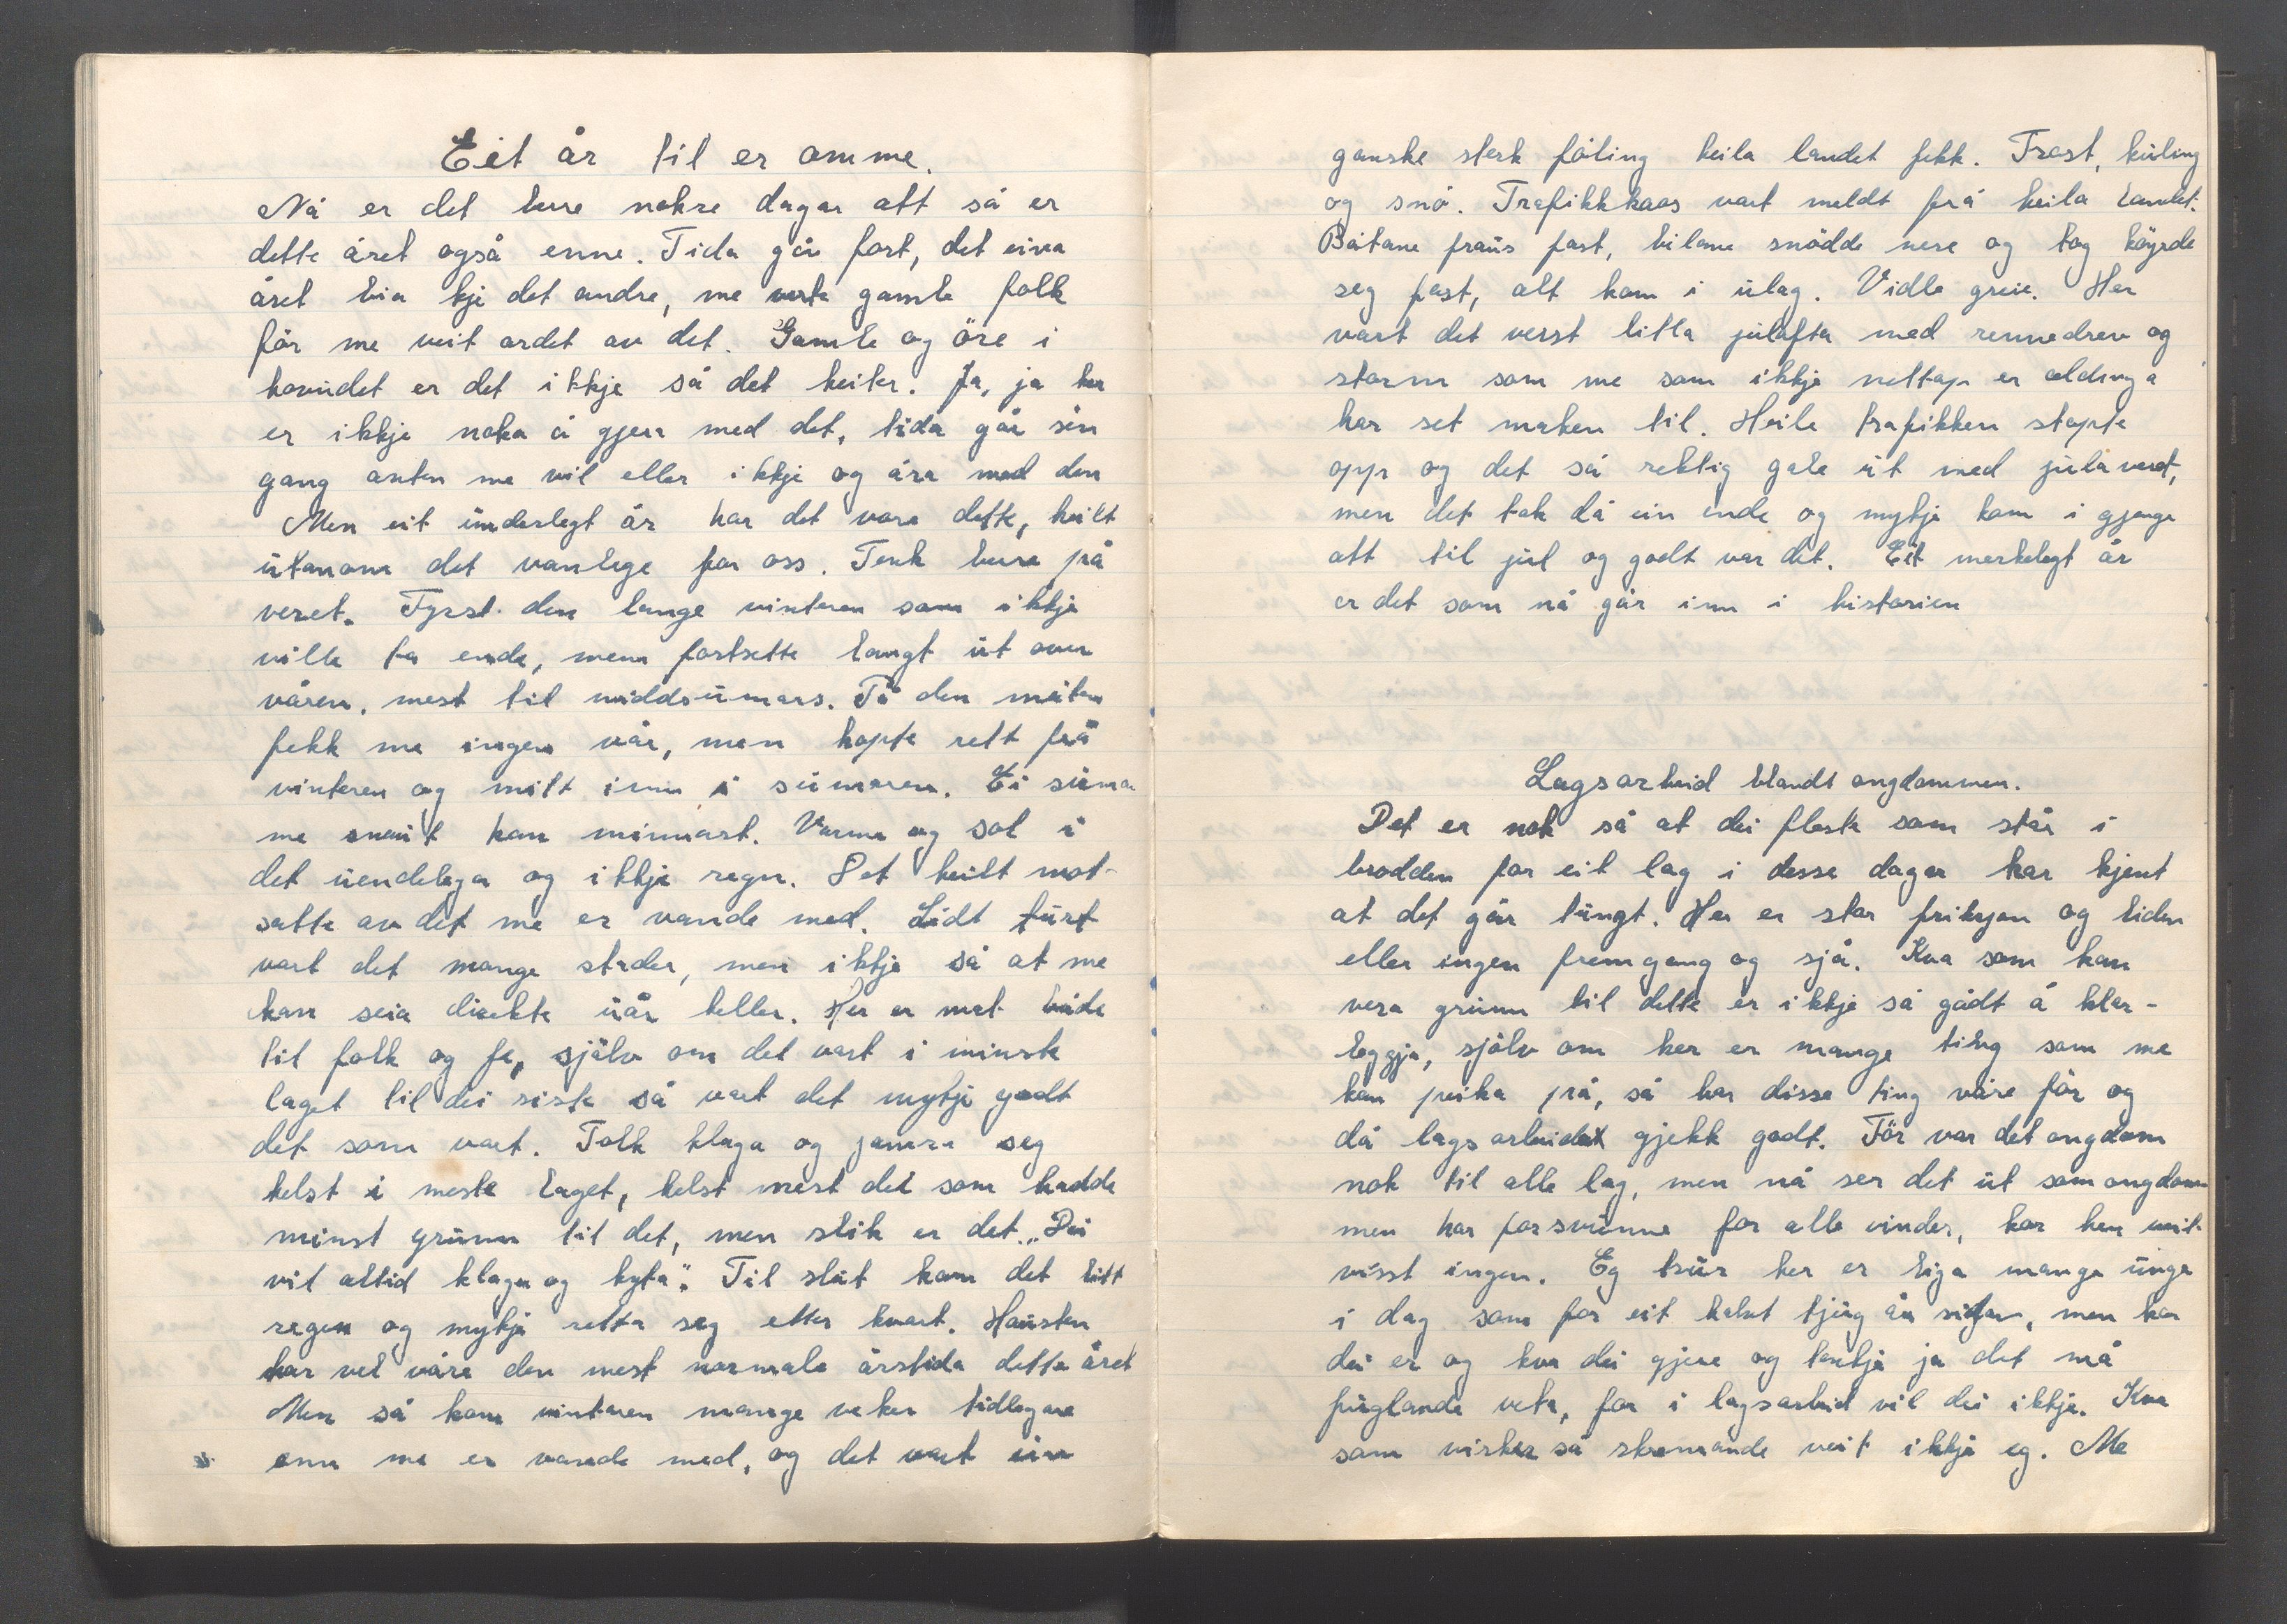 Eit år til er omme.
Nå er det bere nokre dagar att så er
dette året også enne. Tida går fort, det eina
året bia kje det andre, me verte gamle folk
før me veit ordet av det. Gamle og öre i
hovudet er det ikkje så det heiter. Ja, ja her
er ikkje noka å gjera med det, tida går sin
gang anten me vil eller ikkje og åra med den
Men eit underlegt år har det vore dette, heilt
utanom det vanlege for oss. Tenk bere på
veret. Fyrst den lange vinteren som ikkje
ville ta ende, menn fortsette langt ut over
våren, mest til middsumars. På den måten
fekk me ingen vår, men hopte rett frå
vinteren og mitt inn i sumaren. Ei sumar
me snaut kan minnast. Varme og sol i
det uendelega og ikkje regn. Det heilt mot-
satte av det me er vande med. Lidt turt
vart det mange stader, men ikkje så at me
kan seia direkte uår heller. Her er mat både
til folk og fe, själv om det vart i minste
laget til dei siste så vart det mykje godt
det som vart. Folk klaga og jamra seg
helst i meste laget, helst mest dei som hadde
minst grunn til det, men slik er det. „Dei
vil altid klaga og kyta". Til slut kom det litt
regen og mykje retta seg etter kvart. Hausten
har vel våre den mest normale årstida dette året
Men så kom vinteren mange veker tidlegare
enn me er vande med, og det vart ein
ganske sterk føling heila landet fekk. Frost, kuling
og snø. Trafikkkaos vart meldt frå heila landet.
Båtane fraus fast, bilane snödde nere og tog köyrde
seg fast, alt kom i ulag. Vidle greie. Her
vart det verst litla julafta med rennedrev og
storm som me som ikkje nettop er eldinga
har set maken til. Heile trafikken stopte
opp og det så rektig gale ut med julaveret,
men det tok då ein ende og mykje kom i gjenge
att til jul og godt var det. Eit merkelegt år
er det som nå går inn i historien
Lagsarbeid blandt ongdommen.
Det er nok så at dei fleste som står i
brodden for eit lag i desse dagar har kjent
at det går tungt. Her er stor friksjon og liden
eller ingen fremgang og sjå. Kva som kan
vera grunn til dette er ikkje så gådt å klar-
leggja, sjølv om her er mange ting som me
kan peika på, så har disse ting våre før og
då lagsarbeidet gjekk godt. Før var det ongdom
nok til alle lag, men nå ser det ut som ongdom-
men har forsvunne for alle vinder, kor hen veit
visst ingen. Eg trur her er liga mange unge
i dag som for eit halvt tjug år sidan, men kor
dei er og kva dei gjere og tenkje ja det må
fuglande veta, for i lagsarbeid vil dei ikkje. Kva
som virker så skremande veit ikkje eg. Me